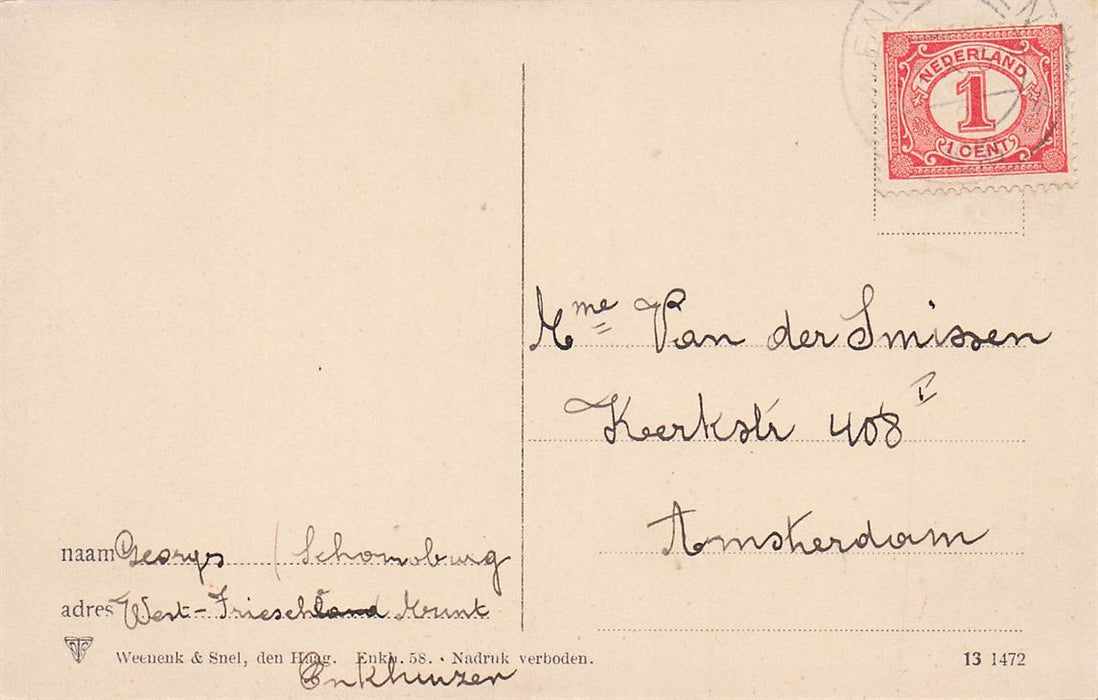 ENK
NEDERLAND
1
1 CENT
Mme Van der Smissen
Kerkstr 408 I
Amsterdam
naam Georgs / Schomburg
adres West-Friesch Munt
Enkhuizen
Weenenk & Snel, den Haag. Enkh. 58. • Nadruk verboden.
13 1472